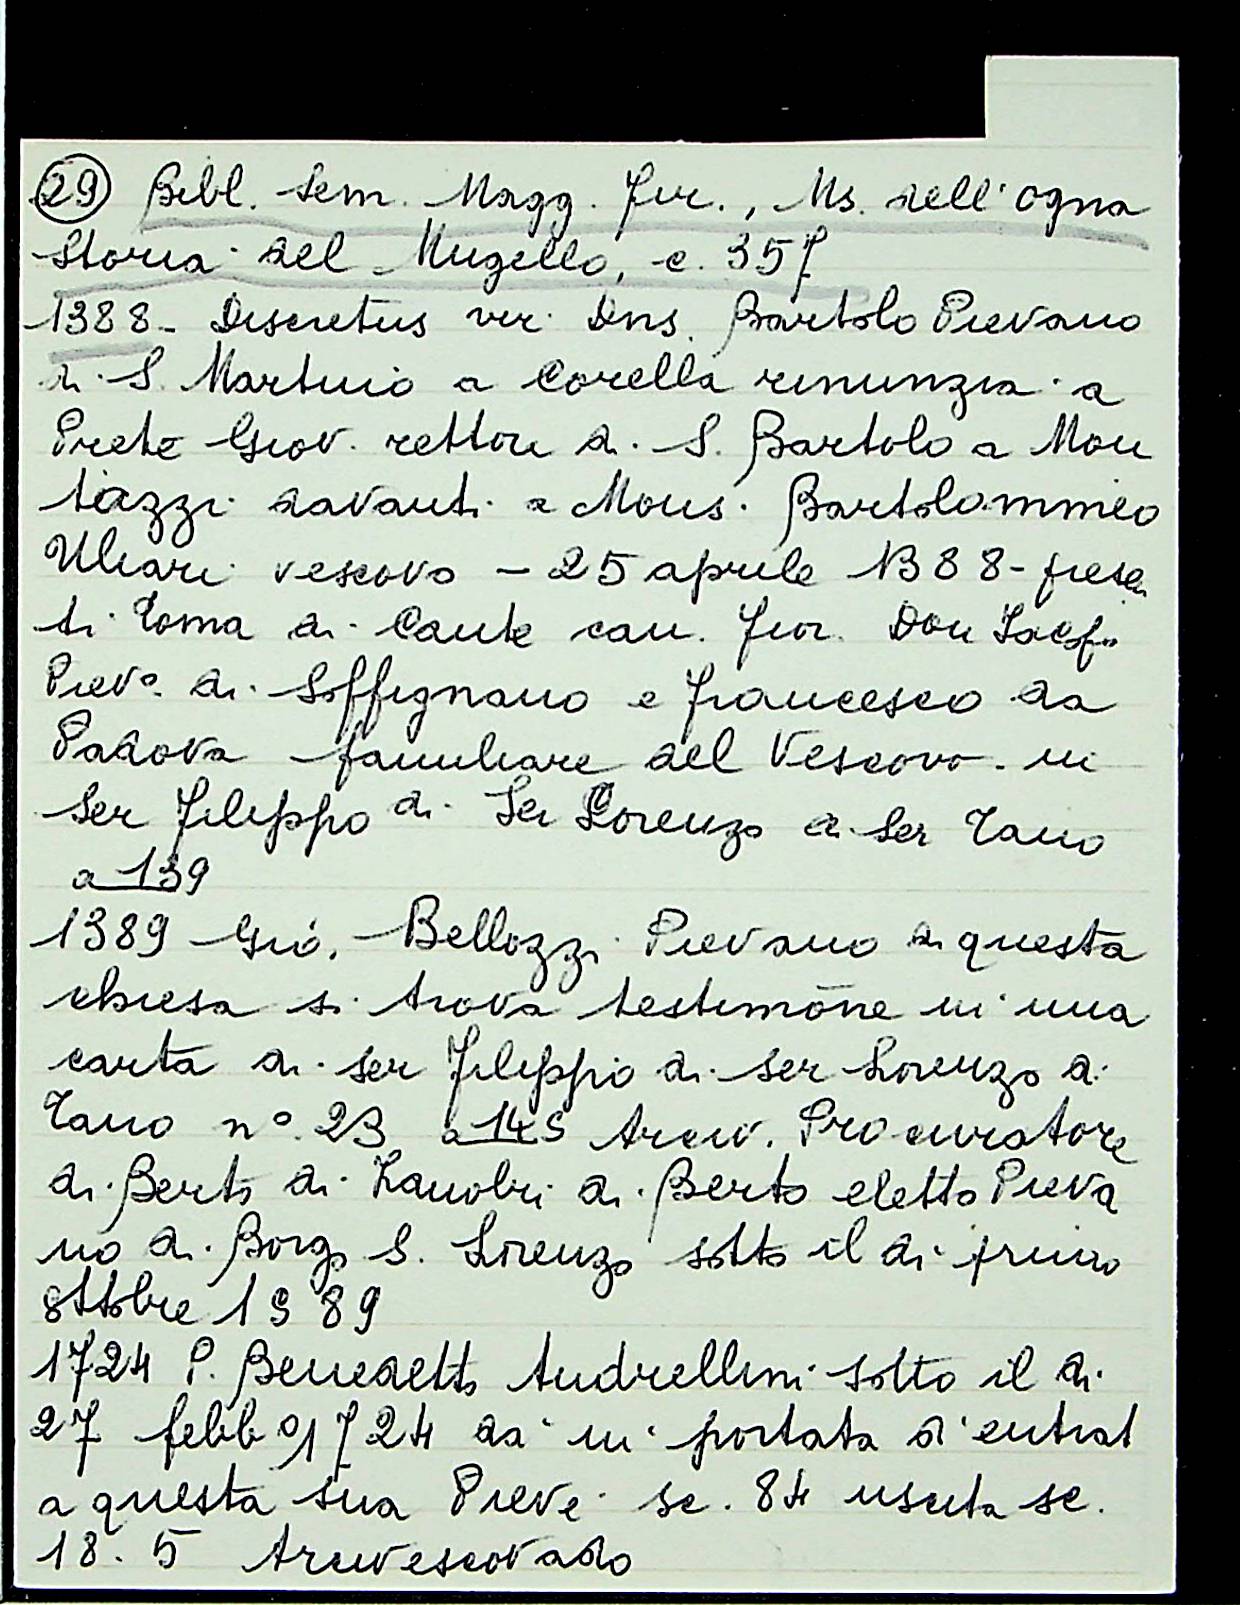 29 Bibl. Sem. Magg. Fir., Ms. dell'Ogna
Storia del Mugello, c. 357
1388 - Discretus vir Dns. Bartolo Pievano
di S. Martino a Corella rinunzia a
Prete Giov. rettore di S. Bartolo a Mon
tazzi davanti a Mons. Bartolommeo
Uliari vescovo - 25 aprile 1388 - presen
ti Toma di Cante can. fior. Don
Piev.o di Soffignano e Francesco da
Padova familiare del Vescovo. in
Ser Filippo di Ser Lorenzo di Ser Tano
a 139
1389 Gio. Bellozzi Pievano di questa
chiesa si trova testimone in una
carta di ser Filippo di ser Lorenzo di
Tano n° 23 a 145 Arciv. Procuratore
di Berto di Zanobi di Berto eletto Pieva
no di Borgo S. Lorenzo sotto il dì primo
ottobre 1389
1724 P. Benedetto Andrellini sotto il dì
27 febb.o 1724 dà in portata d'entrat
a questa sua Pieve sc. 84 uscita sc.
18.5 Arcivescovado